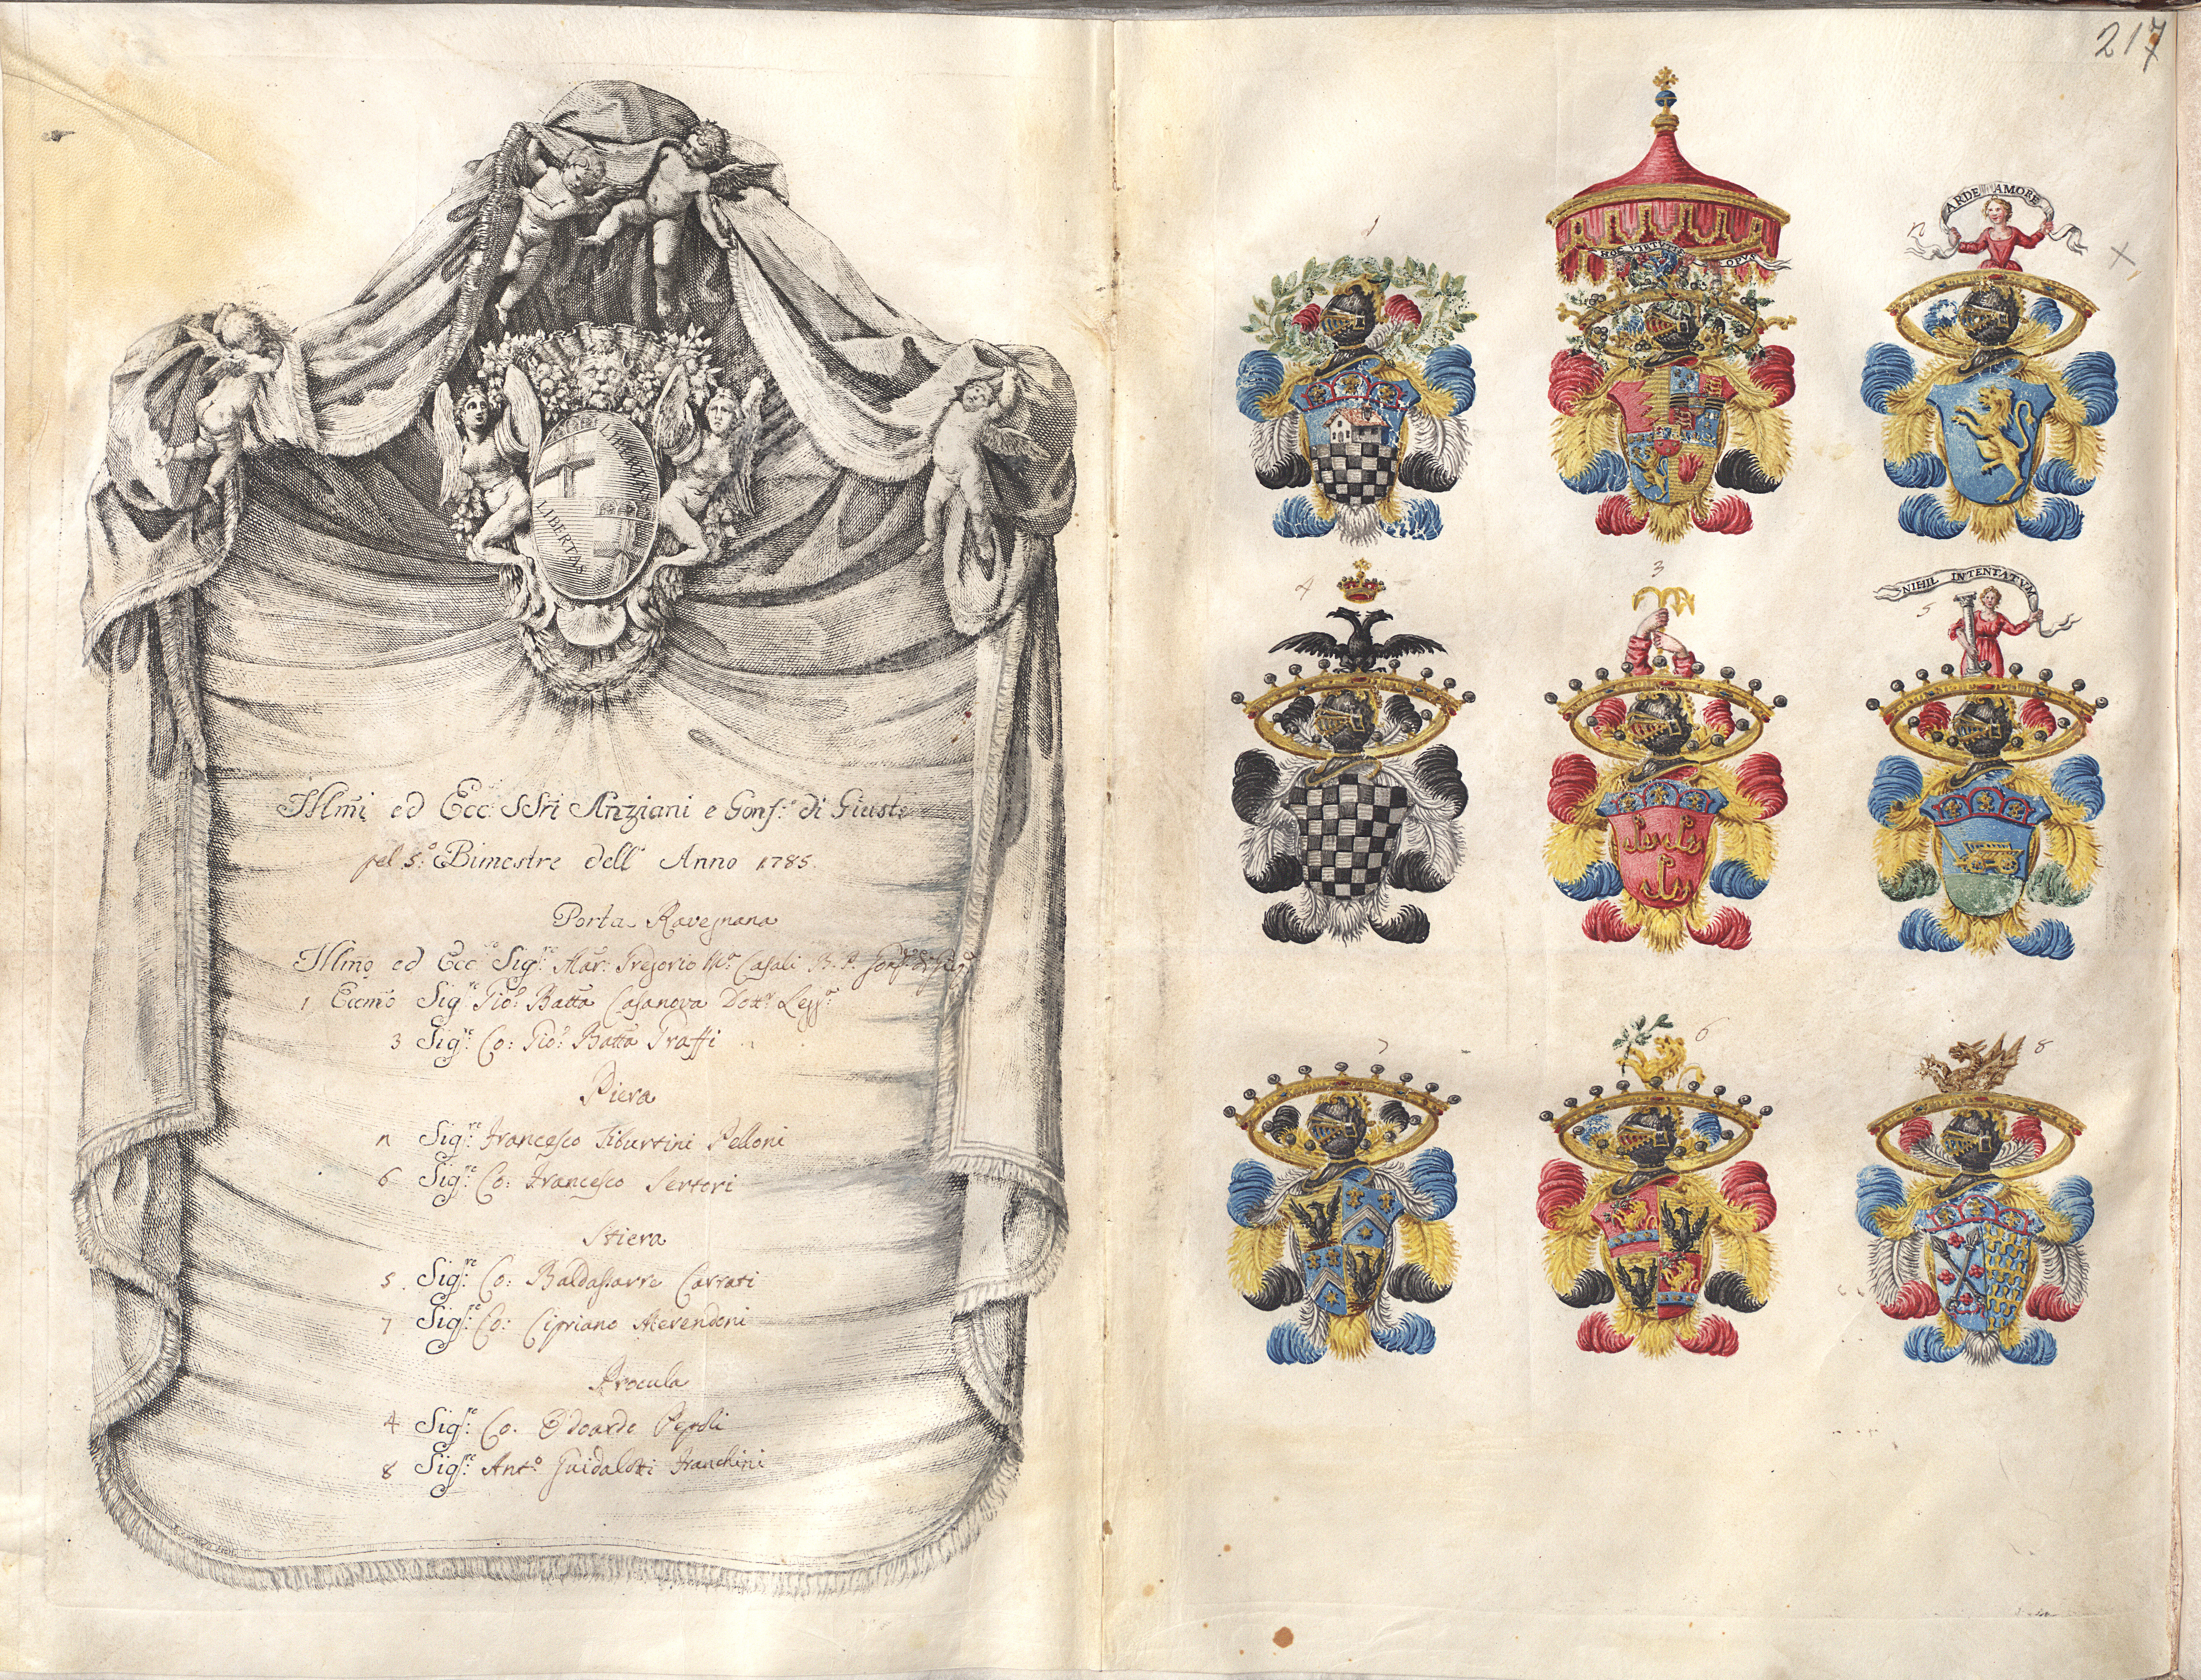 LIBERTAS
LIBERTAS
Illm̃i ed Ecc:ⁱ SSri Anziani e Gonf:ᵉ di Giustᵃ
pel 5.º Bimestre dell' Anno 1785.
Porta Ravegnana
Illm̃o ed Ecc:ᵒ Sig:ʳᵉ Mar: Gregorio Casali
1 Eccm̃o Sig:ʳᵉ Gio: Batta Casanova Dott:ʳ Legg:ᵉ
3 Sig:ʳᵉ Co: Gio: Batta Graffi
Piera
2 Sig:ʳᵉ Francesco Tiburtini Pelloni
6 Sig:ʳᵉ Co: Francesco Sertori
Stiera
5. Sig:ʳᵉ Co: Baldassarre Carrati
7 Sig:ʳᵉ Co: Cipriano Merendoni
Procula
4 Sig:ʳᵉ Co. Odoardo Pepoli
8 Sig:ʳᵉ Ant:º Guidalotti Franchini
217
1
HOC VIRTVTIS OPVS
2
ARDE AMORE
4
3
NIHIL INTENTATVM
5
7
6
8